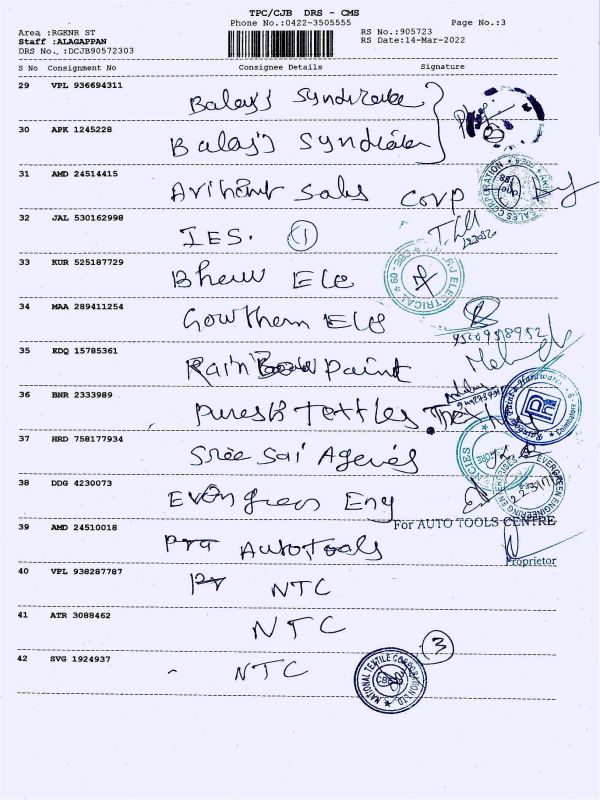 TPC/CJB DRS - CMS
Phone No.:0422-3505555
Page No.:3
Area :RGKNR ST
RS No.:905723
Staff :ALAGAPPAN
RS Date:14-Mar-2022
DRS No.,:DCJB90572303
S No Consignment No Consignee Details Signature
29 VPL 936694311 Balaji Syndicate
30 APK 1245228 Balaji Syndicate
31 AMD 24514415 Arihant Sales Corp
32 JAL 530162998 IES. 1
33 KUR 525187729 Ele
ELECTRICAL
34 MAA 289411254 Gowthem Ele
35 KDQ 15785361 Rainbow paint
36 BNR 2333989
37 HRD 758177934 Sree Sai Agencies
38 DDG 4230073 Evergreen Eng
EVERGREEN ENGINEERING ENTERPRISES
For AUTO TOOLS CENTRE
39 AMD 24510018 Auto Tools
Proprietor
40 VPL 938287787 NTC
41 ATR 3088462 NTC
3
42 SVG 1924937 NTC
NATIONAL TEXTILE CORPORATION LTD.